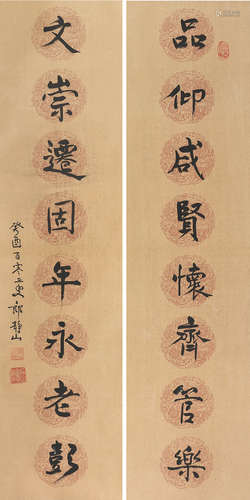 品仰咸賢懷齊管樂
文崇遷固年永老彭
癸酉百零二叟郎靜山